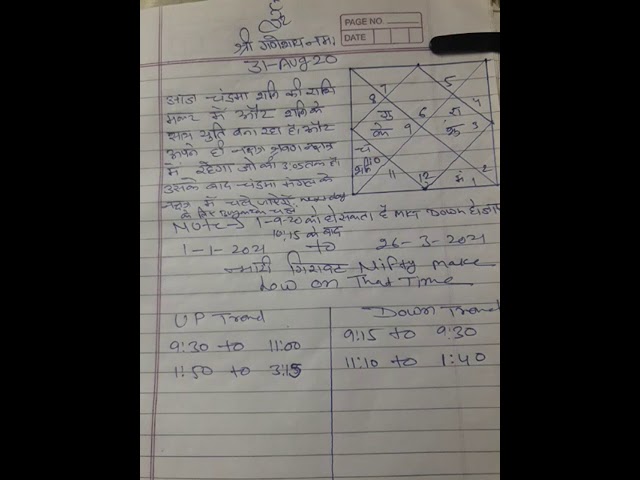 PAGE NO.
DATE
श्री गणेशाय नमः
31-Aug 20
आज चंद्रमा शनि की राशि
मकर में और शनि के
साथ युति बना रहा है। और
अपने ही नक्षत्र श्रवण नक्षत्र
में रहेगा जो की 3:05 तक है।
उसके बाद चंद्रमा मंगल के
नक्षत्र में चले जायेंगे
Note→ 1-9-20 को हो सकता है Mkt Down हो जाए
10:15 के बाद
1-1-2021 to 26-3-2021
भारी गिरावट Nifty make
Low on That Time
UP Trend
9:30 to 11:00
11:50 to 3:15
Down Trend
9:15 to 9:30
11:10 to 1:40
7
5
8
गु
के
6
4
रा
3
शु
9
चं
शनि 10
11
12
मं
1
2